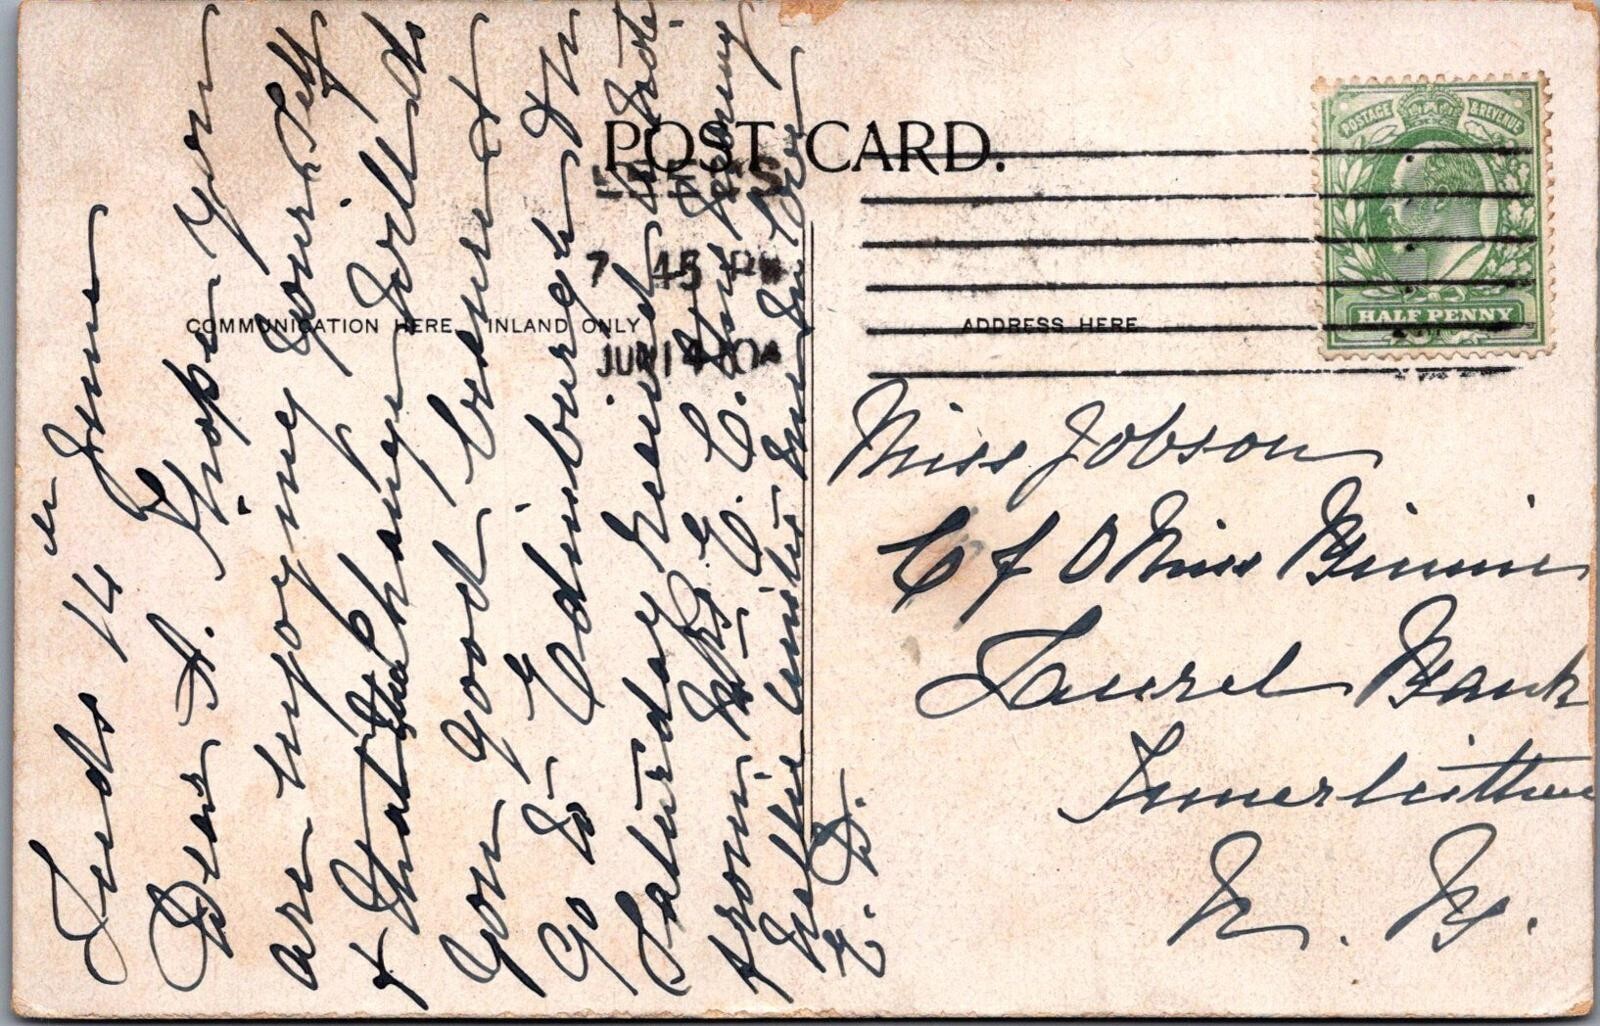 POST CARD.
COMMUNICATION HERE, INLAND ONLY
ADDRESS HERE
POSTAGE & REVENUE
HALF PENNY
LEEDS
7 45 PM
JUN 14 04
Leeds 14 June
Dear A. I hope you
are enjoying your self
& that the change will do
you good because I
go to Edinburgh on
Saturday received a note
from
E. D.
Miss Jobson
C/o Miss Binnie
Laurel Bank
Innerleithen
N. B.